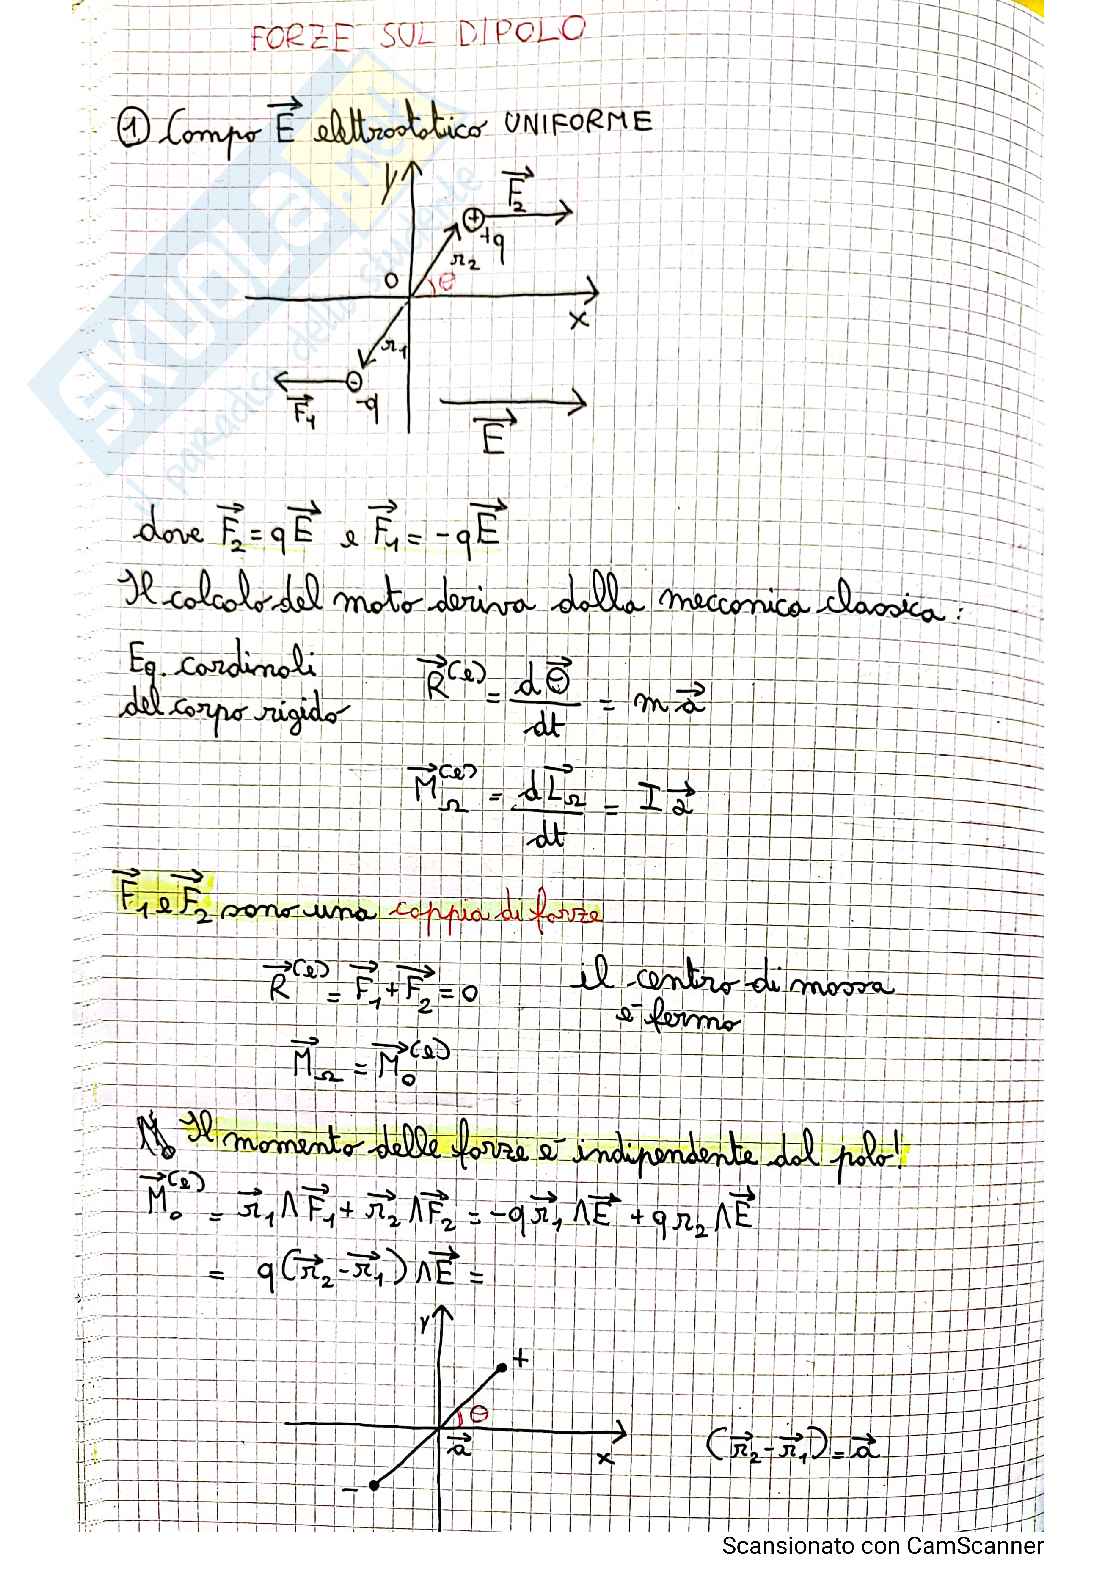 FORZE SUL DIPOLO
① Campo E⃗ elettrostatico UNIFORME
y
F⃗₂
+
+q
r₂
O
θ
x
r₁
-
-q
F⃗₁
E⃗
dove F⃗₂ = qE⃗ e F⃗₁ = -qE⃗
Il calcolo del moto deriva dalla meccanica classica:
Eq. cardinali
del corpo rigido
R⃗⁽ᵉ⁾ = dΘ⃗/dt = m a⃗
M⃗_Ω⁽ᵉ⁾ = dL⃗_Ω/dt = I α⃗
F⃗₁ e F⃗₂ sono una coppia di forze
R⃗⁽ᵉ⁾ = F⃗₁ + F⃗₂ = 0 il centro di massa
è fermo
M⃗_Ω = M⃗₀⁽ᵉ⁾
Il momento delle forze è indipendente dal polo!
M⃗₀⁽ᵉ⁾ = r⃗₁ ∧ F⃗₁ + r⃗₂ ∧ F⃗₂ = -q r⃗₁ ∧ E⃗ + q r₂ ∧ E⃗
= q(r⃗₂ - r⃗₁) ∧ E⃗ =
y
+
θ
a⃗
x
-
(r⃗₂ - r⃗₁) = a⃗
Scansionato con CamScanner
SKUOLA.net
il paradiso dello studente